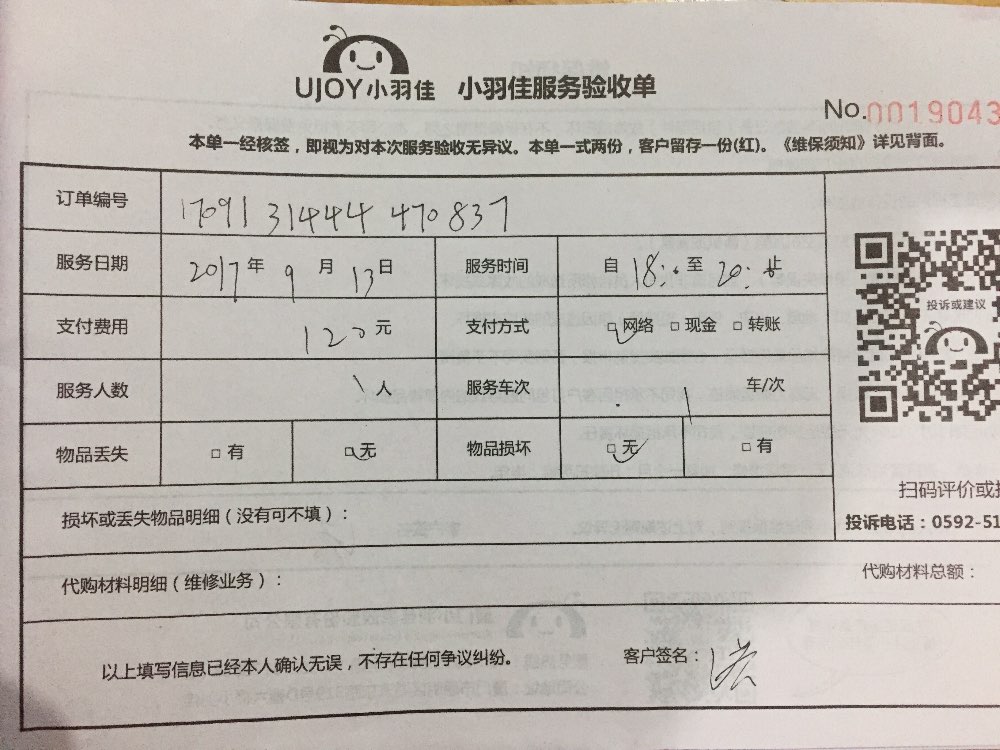 UJOY小羽佳 小羽佳服务验收单
No.0019043
本单一经核签，即视为对本次服务验收无异议。本单一式两份，客户留存一份(红)。《维保须知》详见背面。
订单编号 1709131444470837
服务日期 2017年9月13日 服务时间 自18:00至20:00止
支付费用 120元 支付方式 □网络 □现金 □转账
投诉或建议
服务人数 1人 服务车次 车/次
物品丢失 □有 □无 物品损坏 □无 □有
扫码评价或
损坏或丢失物品明细（没有可不填）：
投诉电话：0592-51
代购材料明细（维修业务）： 代购材料总额：
以上填写信息已经本人确认无误，不存在任何争议纠纷。 客户签名：